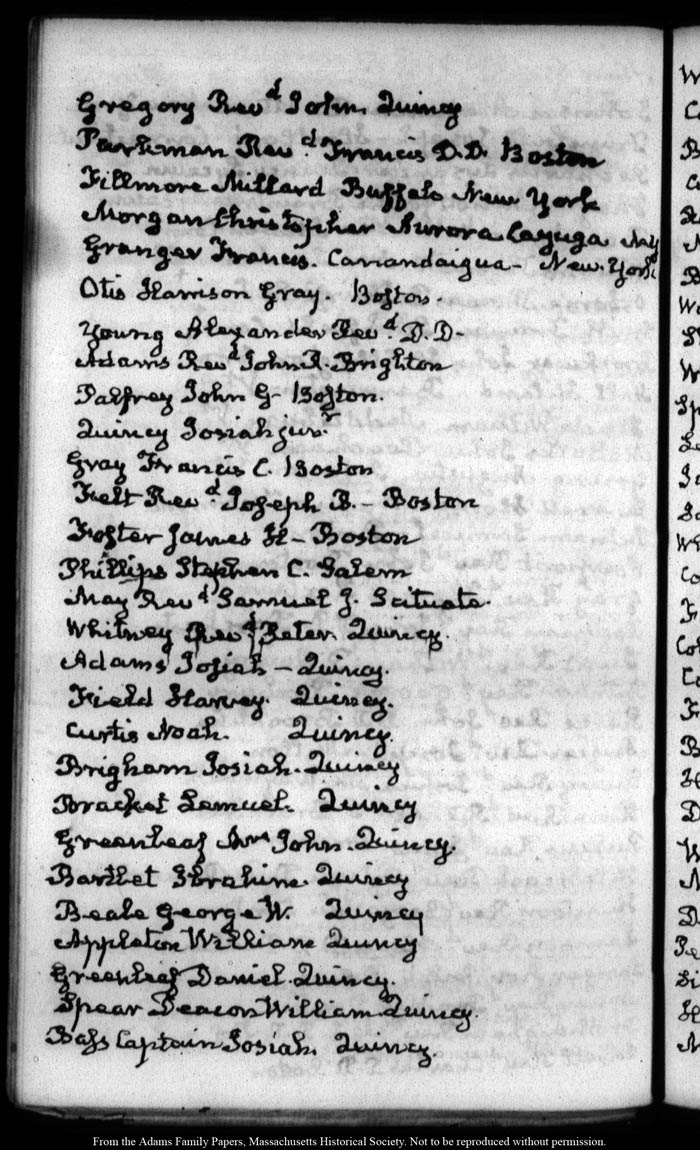 Gregory Revd John. Quincy
Parkman Revd Francis D.D. Boston
Fillmore Millard Buffalo New York
Morgan Christopher Aurora Cayuga N.Y
Granger Francis. Canandaigua - New-York
Otis Harrison Gray. Boston.
Young Alexander Revd D.D-
Adams Revd John R. Brighton
Palfrey John G- Boston.
Quincy Josiah junr
Gray Francis C. Boston
Felt Revd Joseph B. - Boston
Foster James H - Boston
Phillips Stephen C. Salem
May Revd Samuel J. Scituate.
Whitney Revd Peter. Quincy.
Adams Josiah - Quincy.
Field Harvey. Quincy.
Curtis Noah. Quincy.
Brigham Josiah. Quincy
Bracket Lemuel. Quincy
Greenleaf Mrs John. Quincy.
Bartlet Ibrahim. Quincy
Beale George W. Quincy
Appleton William Quincy
Greenleaf Daniel. Quincy.
Spear Deacon William. Quincy.
Bass Captain Josiah. Quincy.
From the Adams Family Papers, Massachusetts Historical Society. Not to be reproduced without permission.